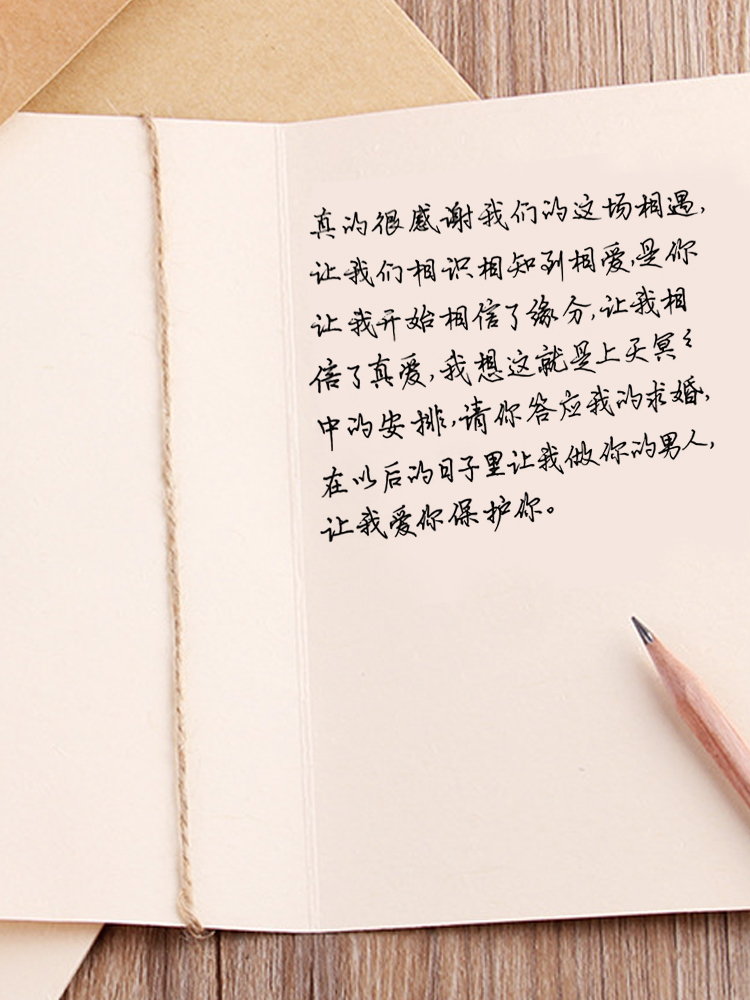 真的很感谢我们的这场相遇,
让我们相识相知到相爱,是你
让我开始相信了缘分,让我相
信了真爱,我想这就是上天冥々
中的安排,请你答应我的求婚,
在以后的日子里让我做你的男人,
让我爱你保护你。